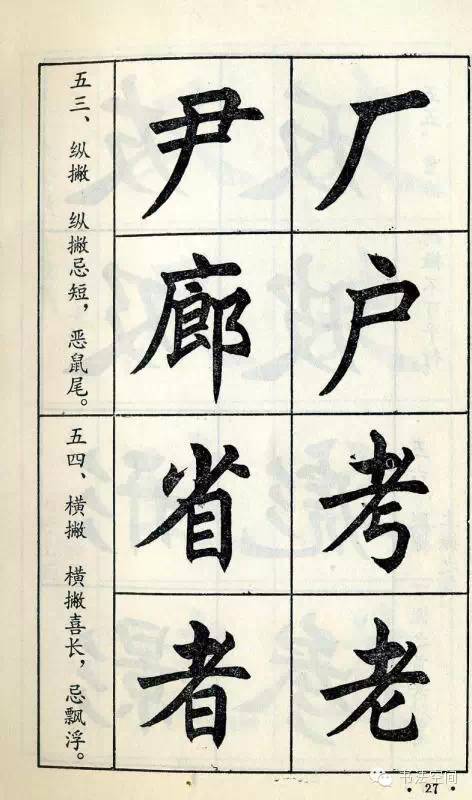 五三、纵撇　纵撇忌短，恶鼠尾。
厂
尹
户
廊
五四、横撇　横撇喜长，忌飘浮。
考
省
老
者
书法空间
·27·